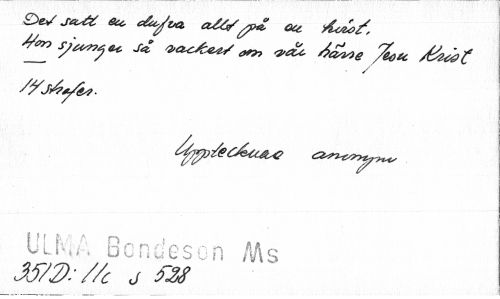 Det satt en dufva allt på en kvist.
Hon sjunger så vackert om vår härre Jesu Krist
—
14 strofer.
Upptecknad anonym
ULMA Bondeson Ms
351D: 11c s 528